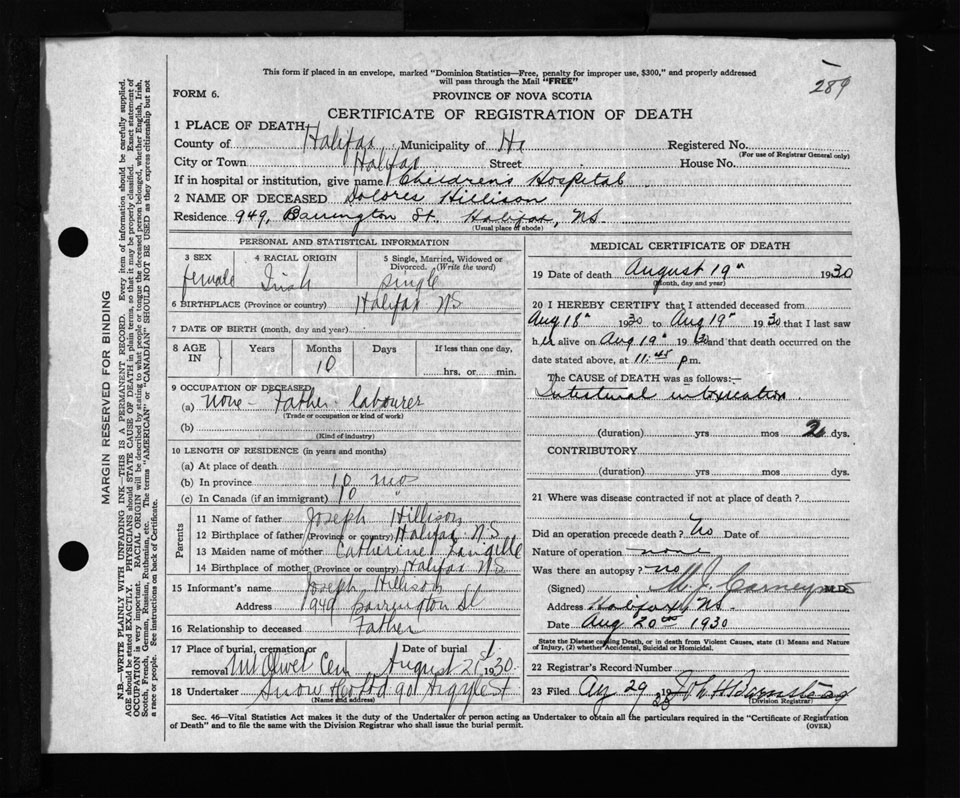 This form if placed in an envelope, marked "Dominion Statistics—Free, penalty for improper use, $300," and properly addressed
will pass through the Mail "FREE"
289
FORM 6.
PROVINCE OF NOVA SCOTIA
CERTIFICATE OF REGISTRATION OF DEATH
1 PLACE OF DEATH
County of Halifax Municipality of Hx Registered No.
(For use of Registrar General only)
City or Town Halifax Street House No.
If in hospital or institution, give name Children's Hospital
2 NAME OF DECEASED Dolores Hillison
Residence 949, Barrington St. Halifax, NS.
(Usual place of abode)
PERSONAL AND STATISTICAL INFORMATION
3 SEX 4 RACIAL ORIGIN 5 Single, Married, Widowed or
Divorced. (Write the word)
female Irish single
6 BIRTHPLACE (Province or country) Halifax NS
7 DATE OF BIRTH (month, day and year)
8 AGE IN Years Months Days If less than one day,
10
hrs. or min.
9 OCCUPATION OF DECEASED
(a) none - Father labourer
(Trade or occupation or kind of work)
(b)
(Kind of industry)
10 LENGTH OF RESIDENCE (in years and months)
(a) At place of death
(b) In province 10 mos
(c) In Canada (if an immigrant) 10 "
Parents
11 Name of father Joseph Hillison
12 Birthplace of father (Province or country) Halifax N.S
13 Maiden name of mother Catherine Langille
14 Birthplace of mother (Province or country) Halifax NS
15 Informant's name Joseph Hillison
Address 949 Barrington St
16 Relationship to deceased Father
17 Place of burial, cremation or Date of burial
removal Mt Olivet Cem August 21st 1930
18 Undertaker Snow & Co Ltd 90 Argyle St
(Name and address)
MEDICAL CERTIFICATE OF DEATH
19 Date of death August 19th 1930
(month, day and year)
20 I HEREBY CERTIFY that I attended deceased from
Aug 18th 1930 to Aug 19th 1930 that I last saw
her alive on Aug 19th 1930 and that death occurred on the
date stated above, at 11.45 p.m.
The CAUSE of DEATH was as follows:—
Intestinal intoxication
(duration) yrs mos 2 dys.
CONTRIBUTORY
(duration) yrs mos dys.
21 Where was disease contracted if not at place of death?
Did an operation precede death? No Date of
Nature of operation none
Was there an autopsy? no
(Signed) M. J. Carney MD
Address Halifax, NS.
Date Aug 20th 1930
State the Disease causing Death, or in death from Violent Causes, state (1) Means and Nature
of Injury, (2) whether Accidental, Suicidal or Homicidal.
22 Registrar's Record Number
23 Filed Aug 29 19 Barnstead
(Division Registrar)
Sec. 46—Vital Statistics Act makes it the duty of the Undertaker or person acting as Undertaker to obtain all the particulars required in the "Certificate of Registration
of Death" and to file the same with the Division Registrar who shall issue the burial permit. (OVER)
MARGIN RESERVED FOR BINDING
N.B.—WRITE PLAINLY WITH UNFADING INK—THIS IS A PERMANENT RECORD. Every item of information should be carefully supplied.
AGE should be stated EXACTLY. PHYSICIANS should STATE CAUSE OF DEATH in plain terms, so that it may be properly classified. Exact statement of
OCCUPATION is very important. RACIAL ORIGIN will be described by stating to what people or tongue the deceased person belonged, whether English, Irish,
Scotch, French, German, Russian, Ruthenian, etc. The terms "AMERICAN" or "CANADIAN" SHOULD NOT BE USED as they express citizenship but not
a race or people. See instructions on back of Certificate.